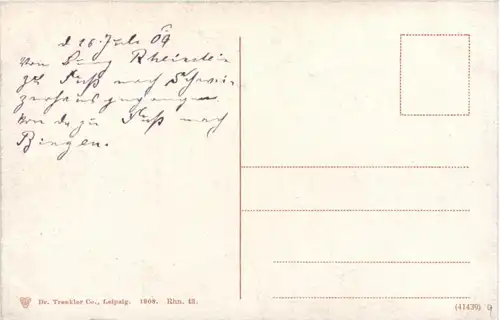 d 26. Juli 09
Von Burg Rheinstein
zu Fuß nach Schwei-
zerhaus gegangen
Von da zu Fuß nach
Bingen.
Dr. Trenkler Co., Leipzig. 1908. Rhn. 13.
(41439)